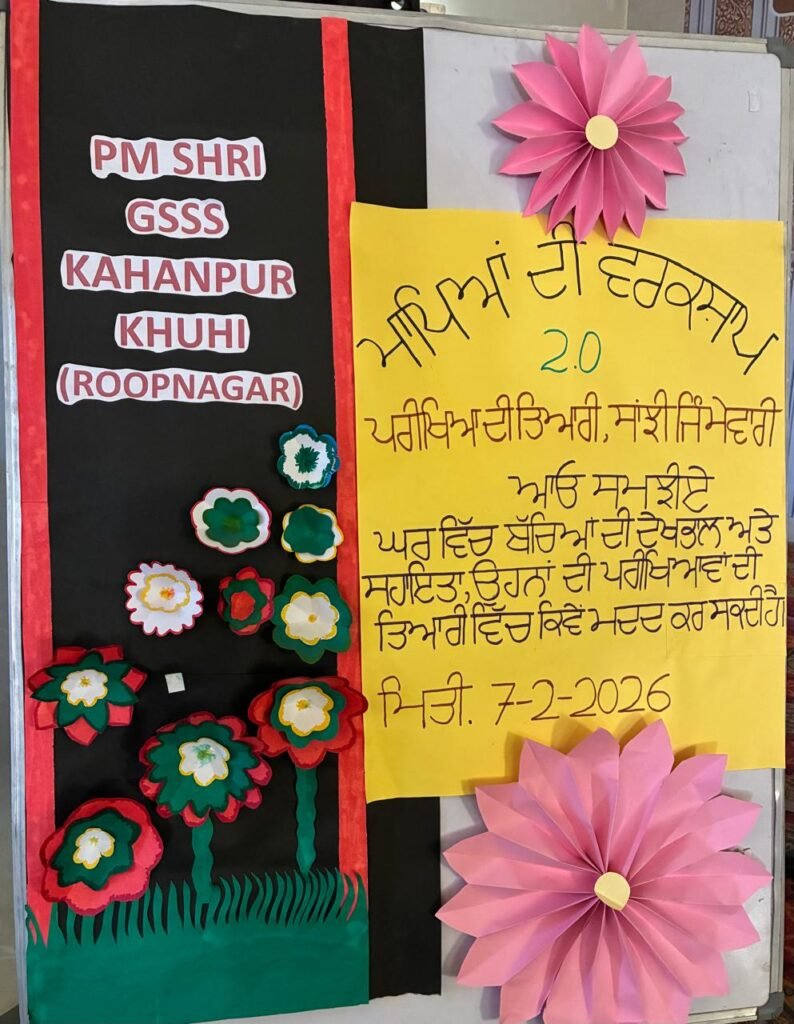 PM SHRI
GSSS
KAHANPUR
KHUHI
(ROOPNAGAR)
ਮਾਪਿਆਂ ਦੀ ਵਰਕਸ਼ਾਪ
2.0
ਪਰੀਖਿਆ ਦੀ ਤਿਆਰੀ, ਸਾਂਝੀ ਜਿੰਮੇਵਾਰੀ
ਆਓ ਸਮਝੀਏ
ਘਰ ਵਿੱਚ ਬੱਚਿਆਂ ਦੀ ਦੇਖਭਾਲ ਅਤੇ
ਸਹਾਇਤਾ, ਉਹਨਾਂ ਦੀ ਪਰੀਖਿਆਵਾਂ ਦੀ
ਤਿਆਰੀ ਵਿੱਚ ਕਿਵੇਂ ਮਦਦ ਕਰ ਸਕਦੀ ਹੈ।
ਮਿਤੀ. 7-2-2026